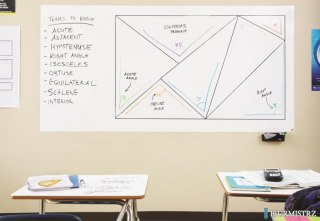 TERMS TO KNOW
- ACUTE
- ADJACENT
- HYPOTENUSE
- RIGHT ANGLE
- ISOSCELES
- OBTUSE
- EQUILATERAL
- SCALENE
- INTERIOR
ISOSCELES
TRIANGLE
ACUTE
ANGLE
OBTUSE
ANGLE
RIGHT
ANGLE
BURMISTRZ